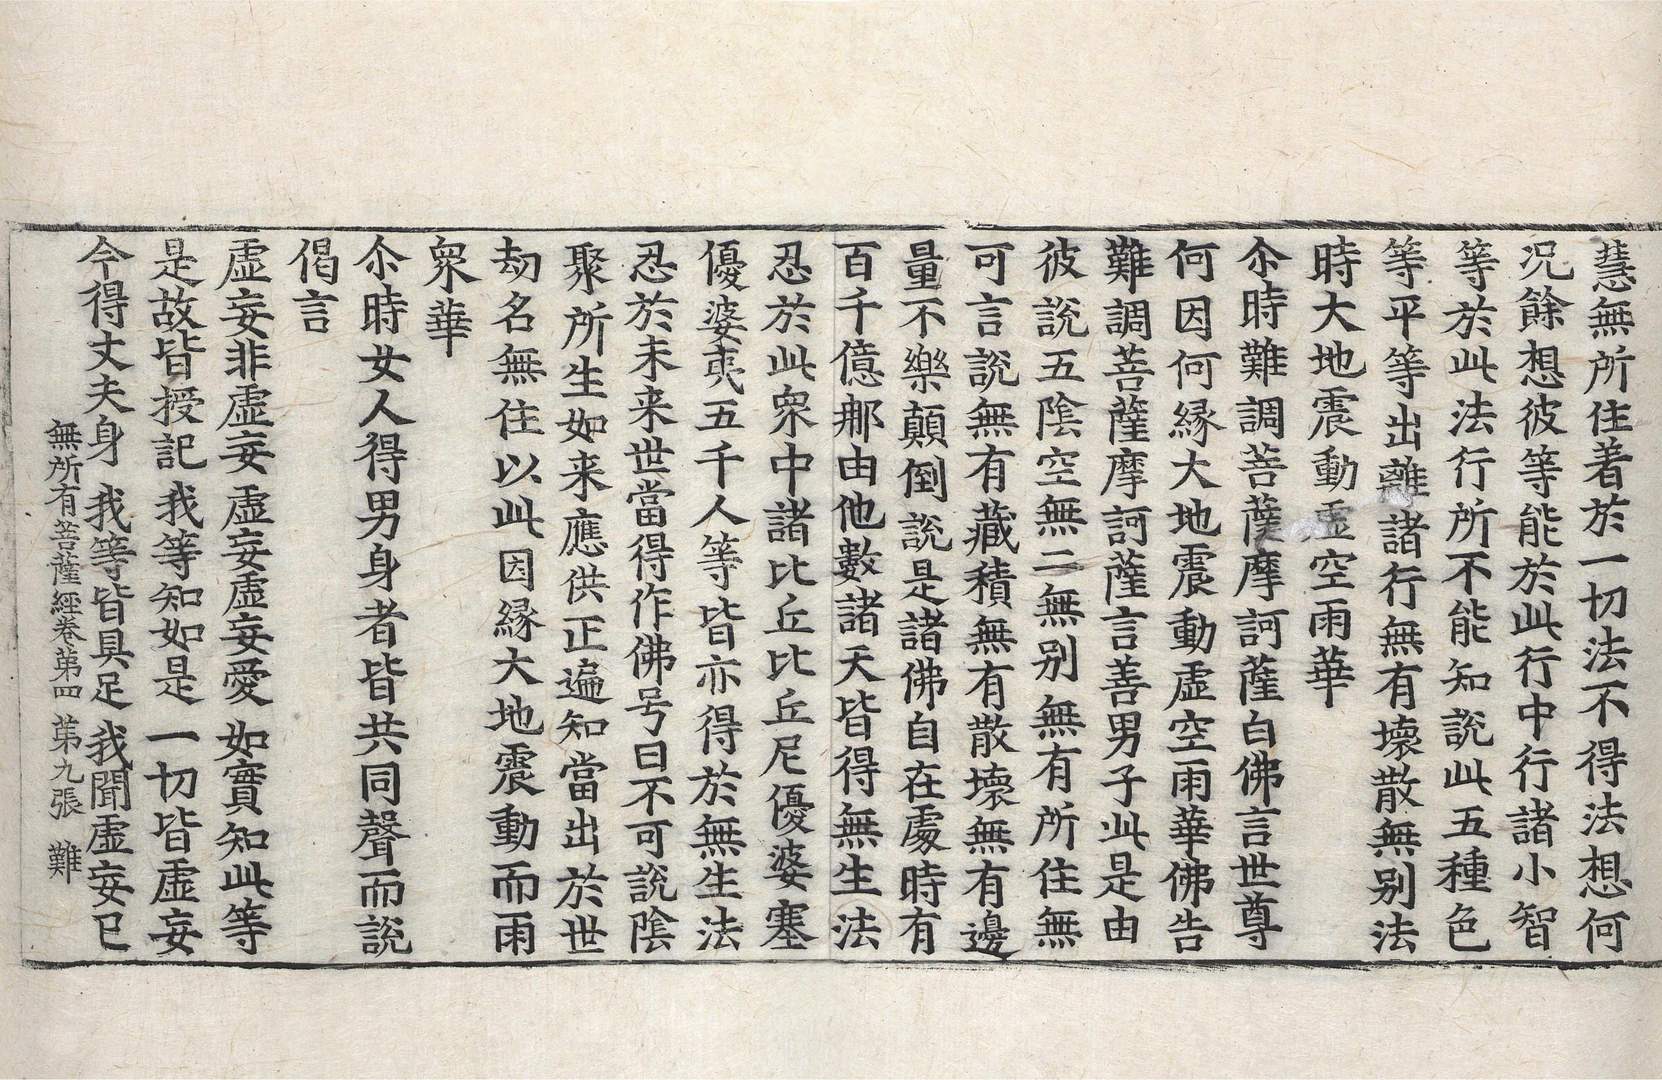 慧無所住着於一切法不得法想何
况餘想彼等能於此行中行諸小智
等於此法行所不能知說此五種色
等平等出離諸行無有壞散無別法
時大地震動虛空雨華
尒時難調菩薩摩訶薩白佛言世尊
何因何縁大地震動虛空雨華佛告
難調菩薩摩訶薩言善男子此是由
彼說五陰空無二無別無有所住無
可言說無有藏積無有散壞無有邊
量不樂顛倒說是諸佛自在處時有
百千億那由他數諸天皆得無生法
忍於此衆中諸比丘比丘尼優婆塞
優婆夷五千人等皆亦得於無生法
忍於未来世當得作佛号曰不可說陰
聚所生如来應供正遍知當出於世
劫名無住以此因縁大地震動而雨
衆華
尒時女人得男身者皆共同聲而說
偈言
虛妄非虛妄 虛妄虛妄愛 如實知此等
是故皆授記 我等知如是 一切皆虛妄
今得丈夫身 我等皆具足 我聞虛妄已
無所有菩薩經卷第四 第九張 難